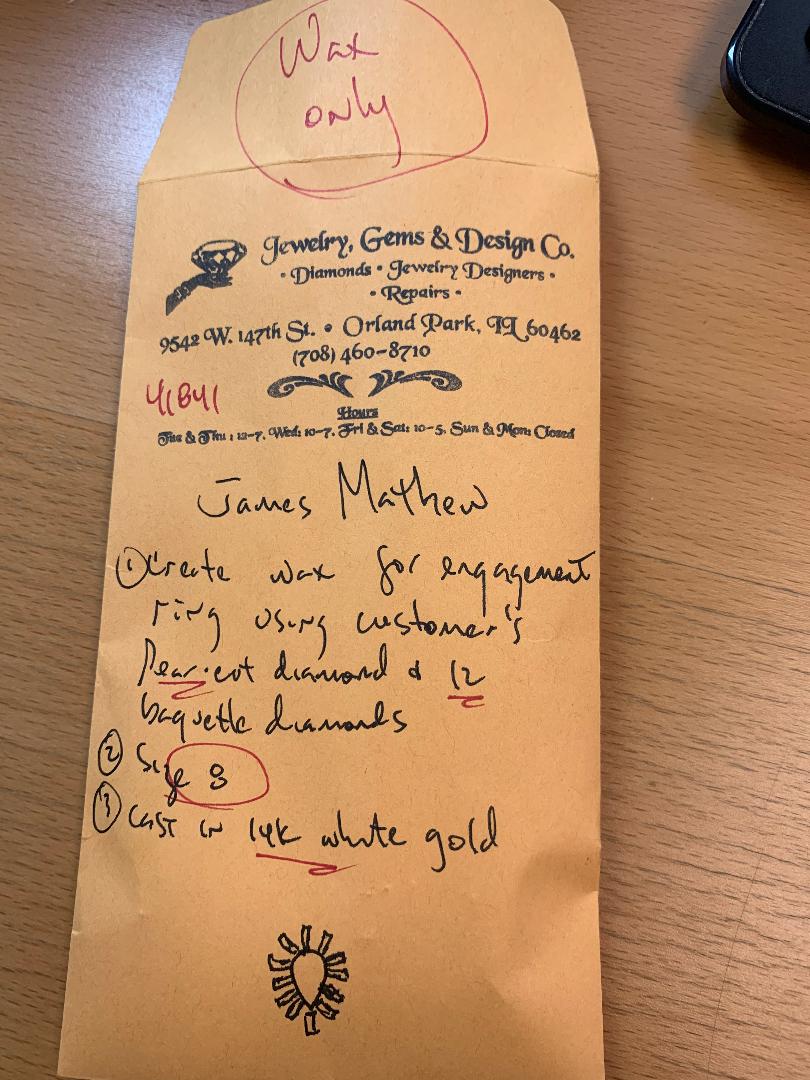 Wax
only
Jewelry, Gems & Design Co.
• Diamonds • Jewelry Designers •
• Repairs •
9542 W. 147th St. • Orland Park, IL 60462
(708) 460-8710
41841
Hours
Tue & Thu: 12-7, Wed: 10-7, Fri & Sat: 10-5, Sun & Mon: Closed
James Mathew
① Create wax for engagement
ring using customer's
Pear-cut diamond & 12
baguette diamonds
② Size 8
③ Cast in 14K white gold